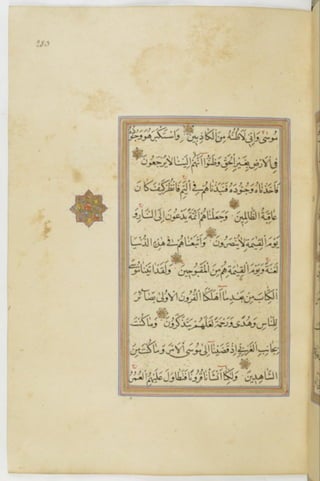 283
موسى واني لاظنه من الكاذبين واستكبر هو وجنوده
في الارض بغير الحق وظنوا انهم الينا لا يرجعون
فاخذناه وجنوده فنبذناهم في اليم فانظر كيف كان
عاقبة الظالمين وجعلناهم ائمة يدعون الى النار و
يوم القيمة لا ينصرون واتبعناهم في هذه الدنيا
لعنة ويوم القيمة هم من المقبوحين ولقد اتينا موسى
الكتاب من بعد ما اهلكنا القرون الاولى بصائر
للناس وهدى ورحمة لعلهم يتذكرون وما كنت
بجانب الغربي اذ قضينا الى موسى الامر وما كنت من
الشاهدين ولكنا انشأنا قرونا فتطاول عليهم العمر